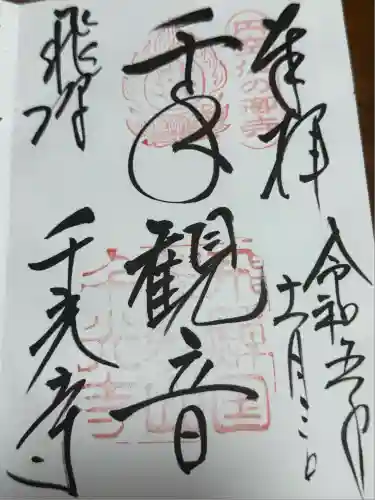 奉拝
令和五年
十一月三日
千手
観音
飛騨
千光寺